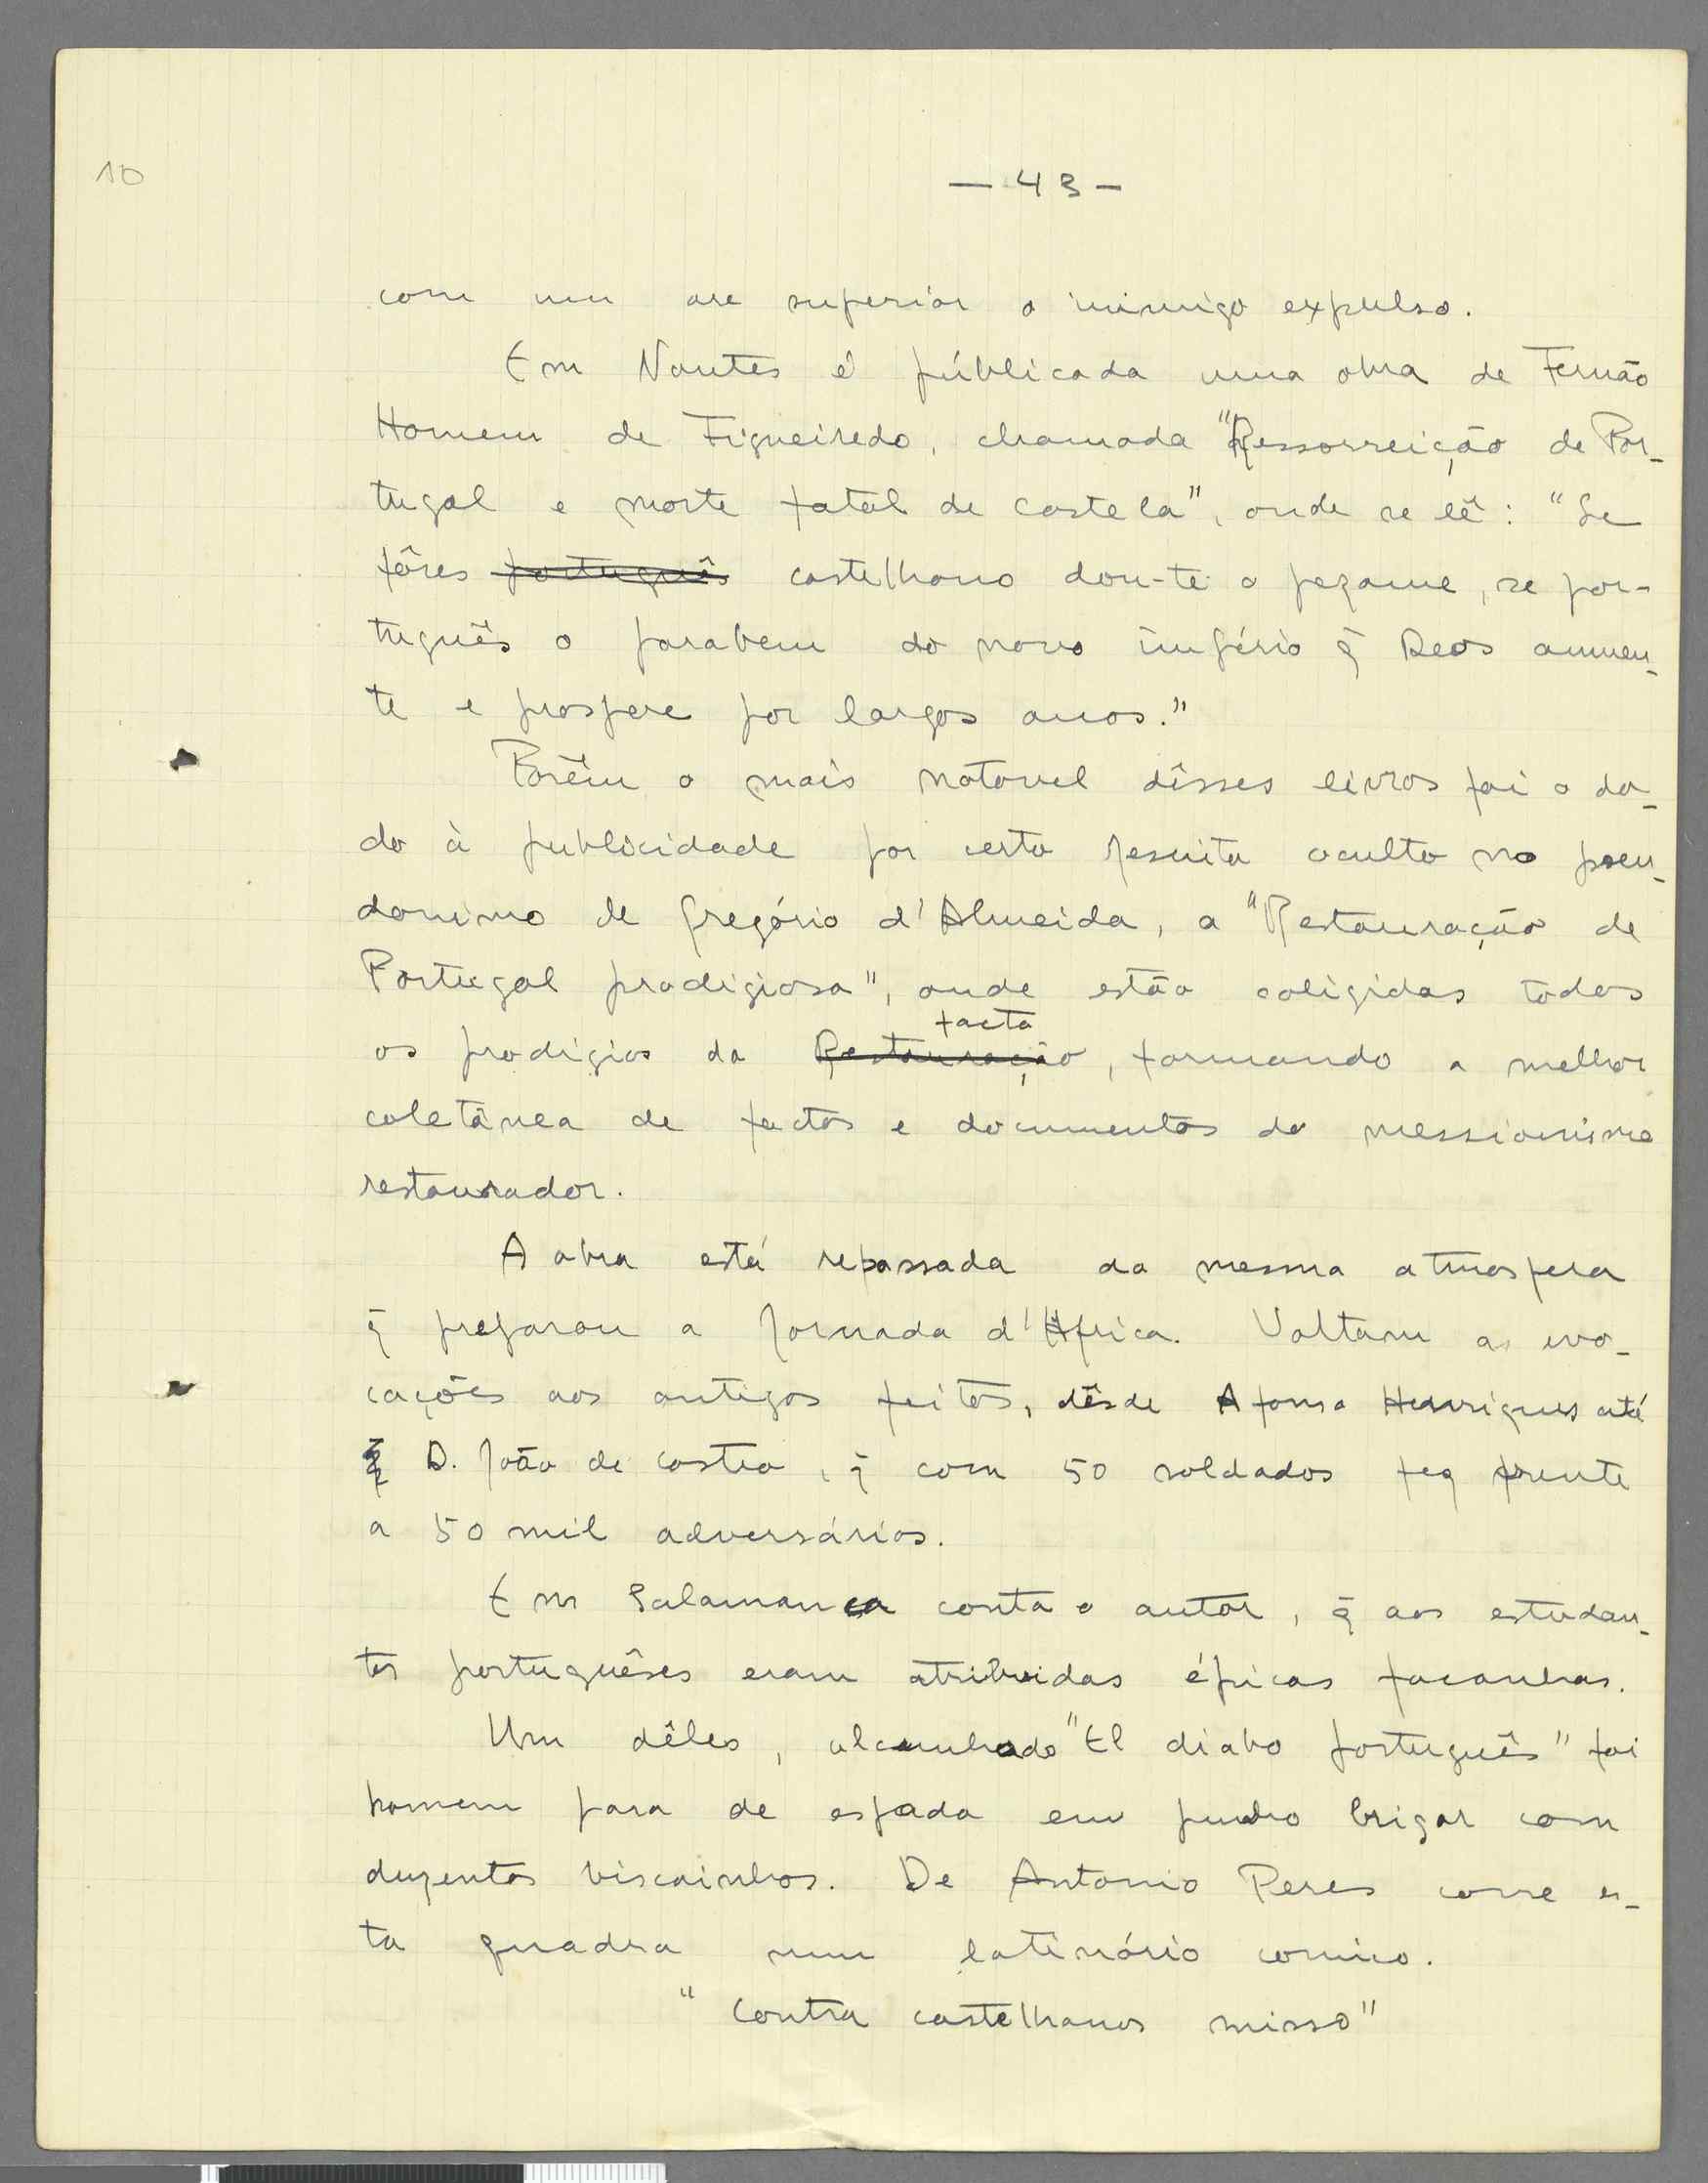 10
— 43 —
com um are superior o inimigo expulso.
Em Nantes é públicada uma obra de Fernão
Homem de Figueiredo, chamada "Ressorreição de Por-
tugal e morte fatal de Castela", onde se lê: "Se
fôres português castelhano dou-te o pezame, se por-
tuguês o parabem do novo império q̃ Deos aumen-
te e prospere por largos anos."
Porêm o mais notavel dêsses livros foi o da-
do à publicidade por certo Jesuita oculto no pseu-
donimo de Gregório d'Almeida, a "Restauração de
Portugal prodigiosa", onde estão coligidas todos
facto
os prodígios da Restauração, formando a melhor
coletânea de factos e documentos do messianismo
restaurador.
A obra está repassada da mesma atmosfera
q̃ preparou a Jornada d'Africa. Voltam as evo-
cações aos antigos feitos, dêsde Afonso Henriques até
D. João de Castro, q̃ com 50 soldados fez frente
a 50 mil adversários.
Em Salamanca conta o autor, q̃ aos estudan-
tes portuguêses eram atribuidas épicas façanhas.
Um dêles, alcunhado "El diabo português" foi
homem para de espada em punho brigar com
duzentos biscainhos. De Antonio Peres corre es-
ta quadra num latinório comico.
"Contra castelhanos misso"